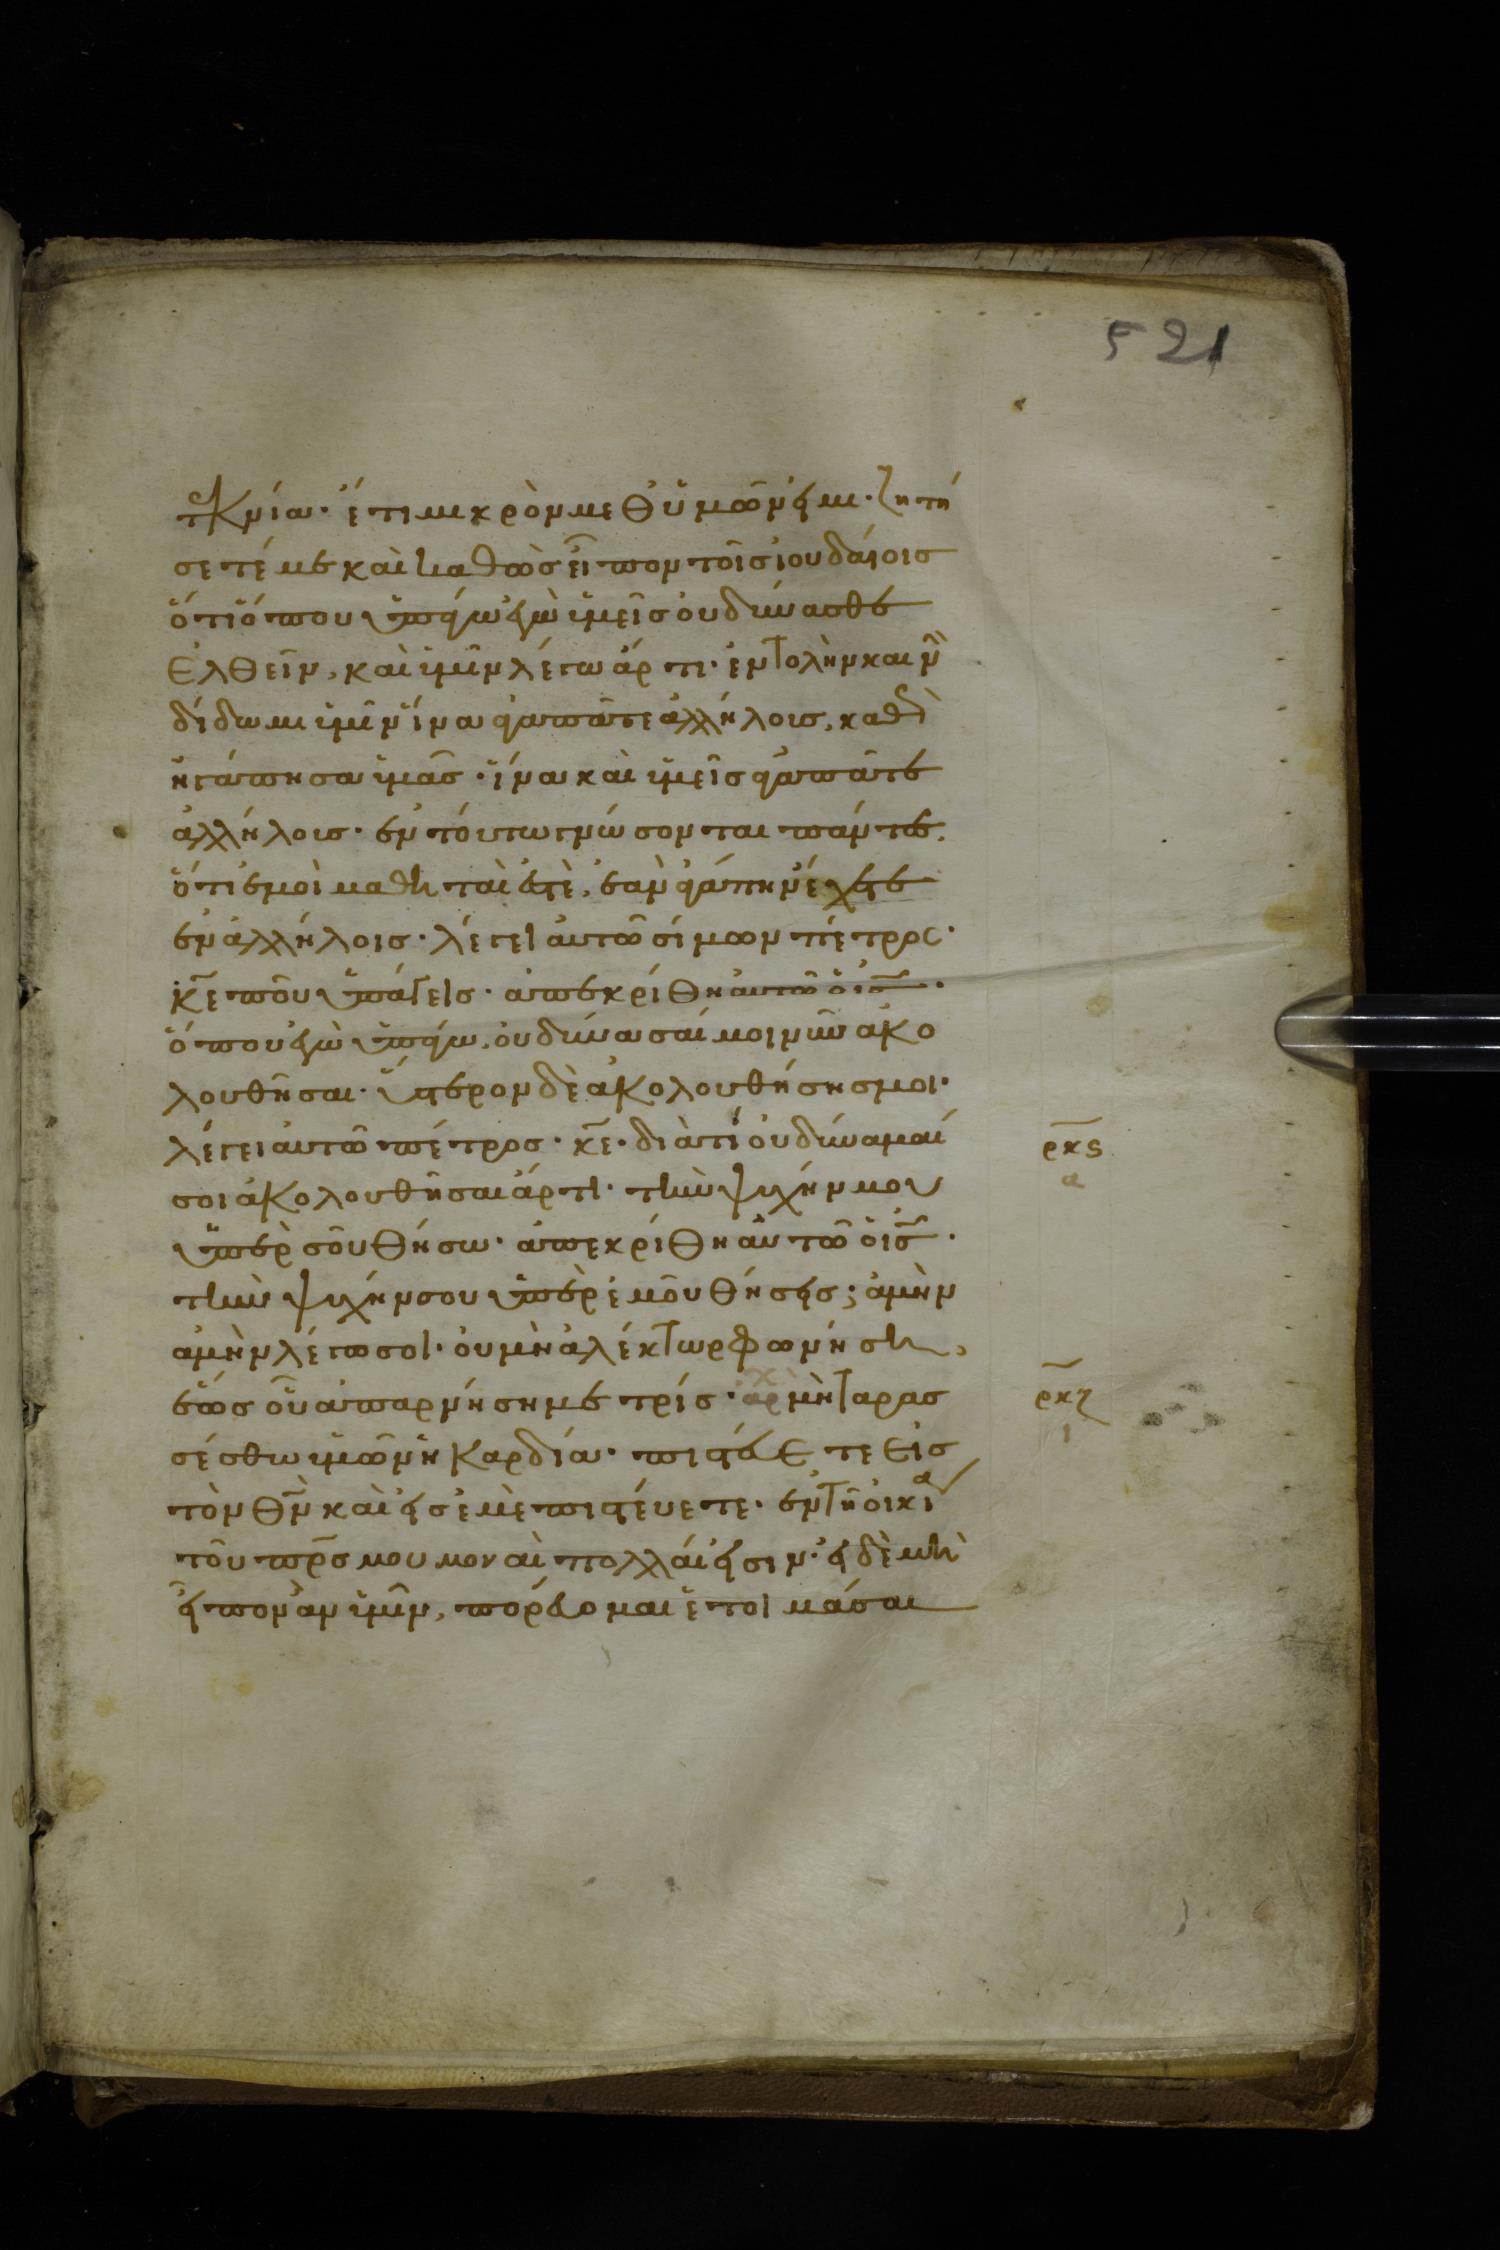 521
τεκνία· ἔτι μικρὸν μεθ ὑμῶν εἰμι· ζητή
σετέ με καὶ καθὼς εἶπον τοῖς ἰουδαίοις
ὅτι ὅπου ὑπάγω ἐγὼ ὑμεῖς οὐ δύνασθε
ἐλθεῖν, καὶ ὑμῖν λέγω ἄρτι· ἐντολὴν καινὴν
δίδωμι ὑμῖν ἵνα ἀγαπᾶτε ἀλλήλοις, καθὼ
ἠγάπησα ὑμᾶς· ἵνα καὶ ὑμεῖς ἀγαπᾶτε
ἀλλήλοις· ἐν τούτω γνώσονται πάντες.
ὅτι ἐμοὶ μαθηταὶ ἐστὲ, ἐὰν ἀγάπην ἔχετε
ἐν ἀλλήλοις· λέγει αὐτῶ σίμων πέτρος·
κε ποῦ ὑπάγεις· ἀπεκρίθη αὐτῶ ὁ ις·
ὅπου ἐγὼ ὑπάγω, οὐ δύνασαί μοι νῦν ἀκο
λουθῆσαι· ὕστερον δὲ ἀκολουθήσης μοι·
λέγει αὐτῶ πέτρος· κε· διὰ τί οὐ δύναμαί
σοι ἀκολουθῆσαι ἄρτι· τὴν ψυχήν μου
ὑπὲρ σοῦ θήσω· ἀπεκρίθη αὐτῶ ὁ ις·
τὴν ψυχήν σου ὑπὲρ ἐμοῦ θήσεις; ἀμὴν
ἀμὴν λέγω σοι· οὐ μὴ ἀλέκτωρ φωνήση,
ἕως οὗ ἀπαρνήση με τρίς· αρχ μὴ ταρας
σέσθω ὑμῶν ἡ καρδία· πιστεύετε εἰς
τὸν θν καὶ εἰς ἐμὲ πιστεύετε· ἐν τῆ οἰκία
τοῦ πρς μου μοναὶ πολλαί εἰσιν· εἰ δὲ μὴ
εἶπον ἂν ὑμῖν, πορεύομαι ἑτοιμάσαι
ρκς
α
ρκζ
ι